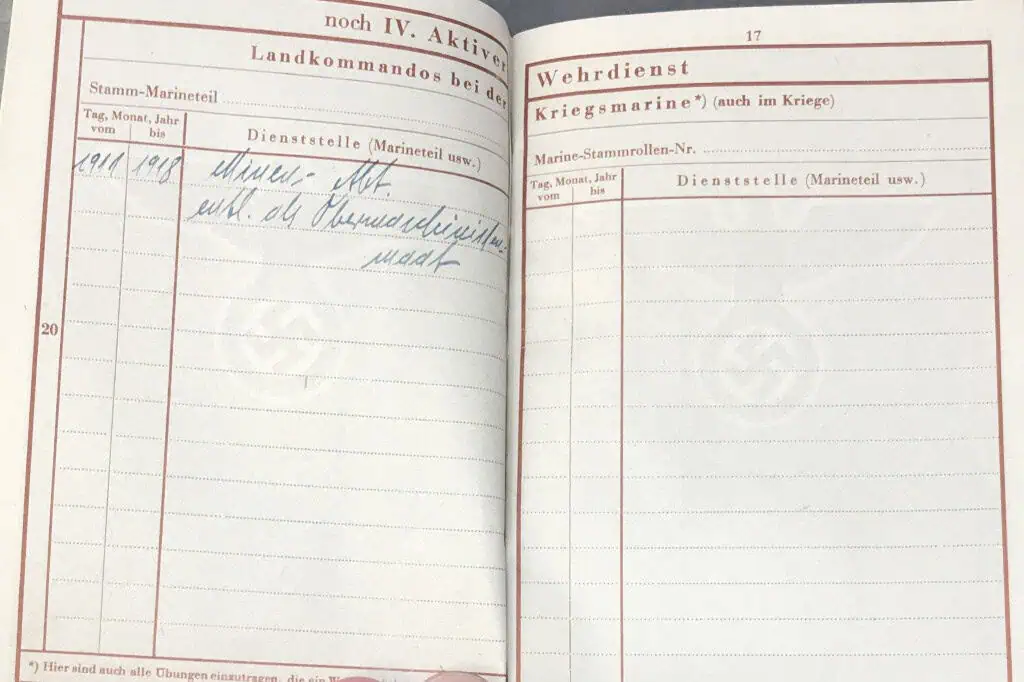 noch IV. Aktiver
Landkommandos bei der
Stamm-Marineteil
Tag, Monat, Jahr
vom bis
Dienststelle (Marineteil usw.)
1911 1918 Minen- Abt.
entl. als Obermaschinisten-
maat
20
*) Hier sind auch alle Übungen einzutragen, die ein
17
Wehrdienst
Kriegsmarine*) (auch im Kriege)
Marine-Stammrollen-Nr.
Tag, Monat, Jahr
vom bis
Dienststelle (Marineteil usw.)